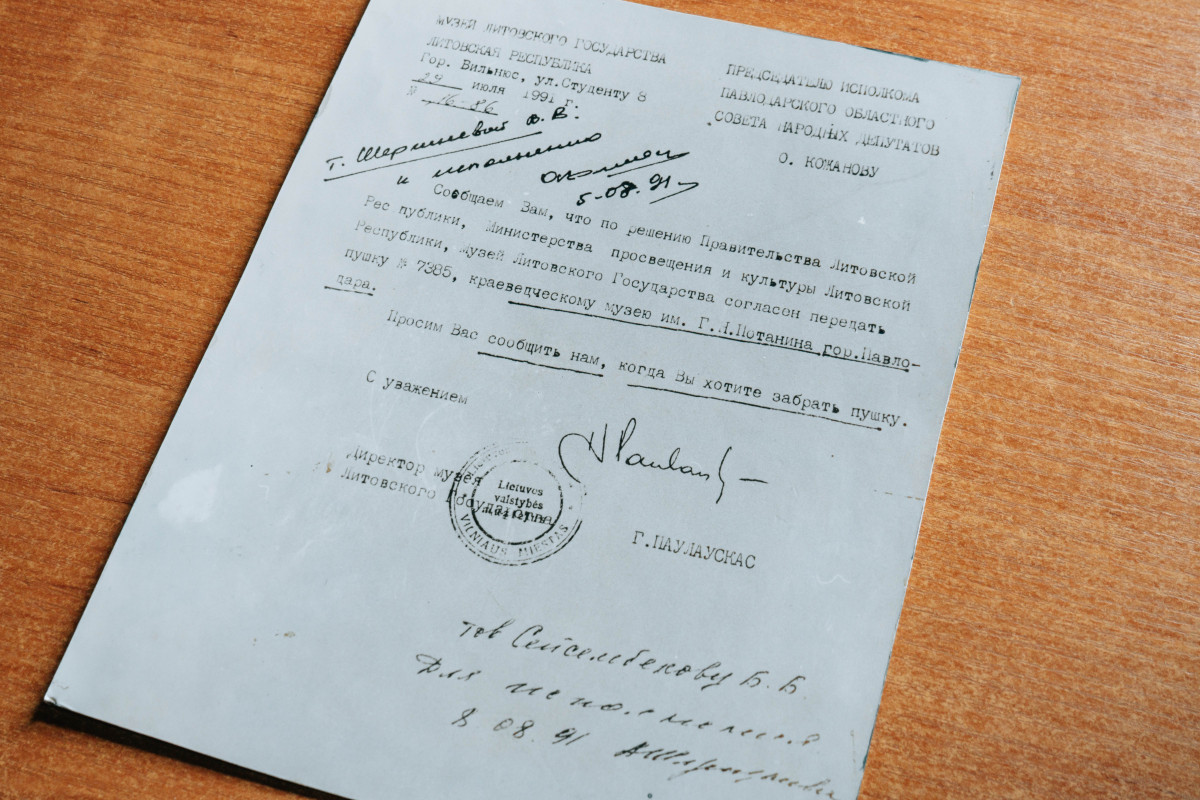 МУЗЕЙ ЛИТОВСКОГО ГОСУДАРСТВА
ЛИТОВСКАЯ РЕСПУБЛИКА
Гор. Вильнюс, ул.Студенту 8
29 июля 1991 г.
№ 16-86
ПРЕДСЕДАТЕЛЮ ИСПОЛКОМА
ПАВЛОДАРСКОГО ОБЛАСТНОГО
СОВЕТА НАРОДНЫХ ДЕПУТАТОВ
О. КОЖАНОВУ
т. В.
к исполнению
5-08.91
Сообщаем Вам, что по решению Правительства Литовской
Рес публики, Министерства просвещения и культуры Литовской
Республики, музей Литовского Государства согласен передать
пушку № 7385, краеведческому музею им. Г.Н.Потанина гор.Павло-
дара.
Просим Вас сообщить нам, когда Вы хотите забрать пушку.
С уважением
Директор музея
Литовского Государства
Lietuvos
valstybės
muziejus
VILNIAUS MIESTAS
Г.ПАУЛАУСКАС
тов Сейсембекову Б. Б.
Для исполнения
8 08. 91